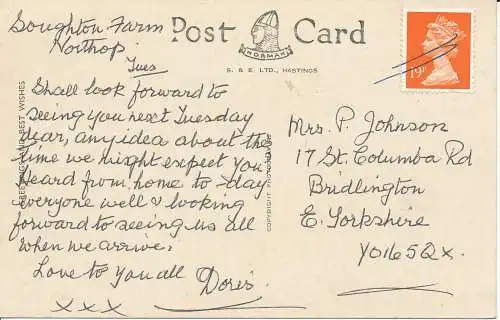 Soughton Farm
Northop.
Tues
Shall look forward to
seeing you next Tuesday
dear, any idea about the
time we might expect you
Heard from home to-day
everyone well & looking
forward to seeing us all
when we arrive.
Love to you all Doris
xxx
GREETINGS AND BEST WISHES
Post Card
NORMAN
S. & E. LTD., HASTINGS
COPYRIGHT
19P
Mrs. P. Johnson
17 St. Columba Rd
Bridlington
E. Yorkshire
YO16 5QX.